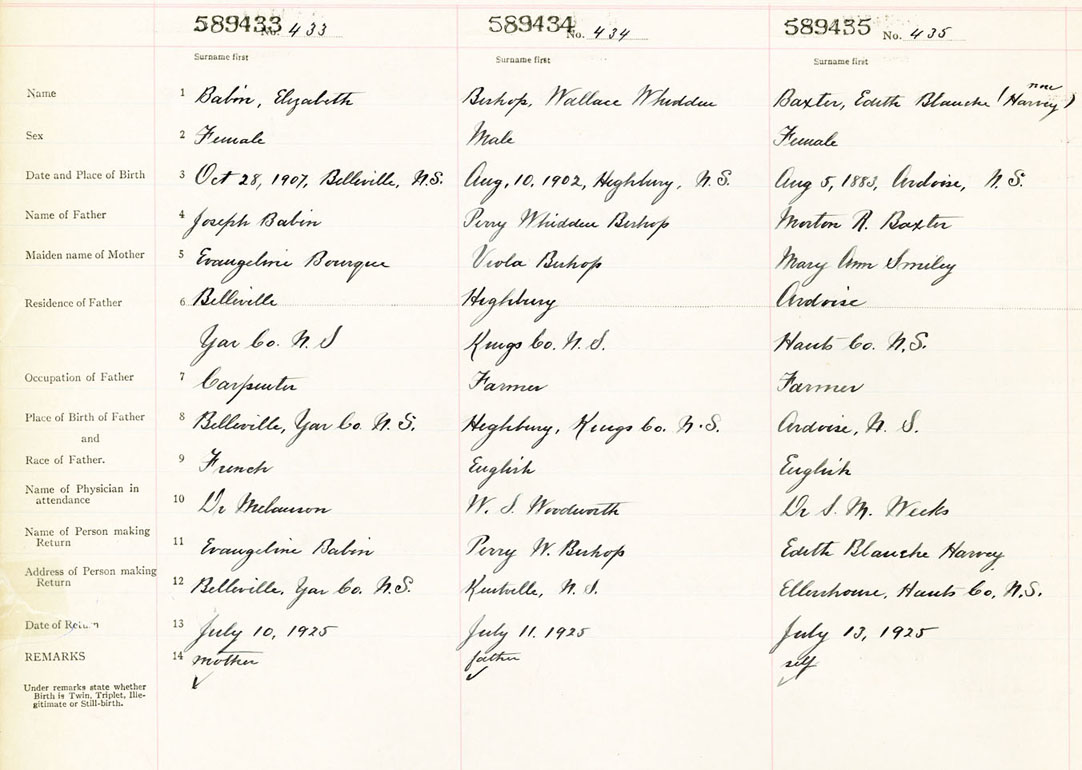 589433 No. 433 589434 No. 434 589435 No. 435
Surname first Surname first Surname first
Name 1 Babin, Elizabeth Bishop, Wallace Whidden Baxter, Edith Blanche (now Harvey)
Sex 2 Female Male Female
Date and Place of Birth 3 Oct 28, 1907, Belleville, N.S. Aug, 10, 1902, Highbury, N.S. Aug 5, 1883, Ardoise, N.S.
Name of Father 4 Joseph Babin Perry Whidden Bishop Morton A. Baxter
Maiden name of Mother 5 Evangeline Bourque Viola Bishop Mary Ann Smiley
Residence of Father 6 Belleville Highbury Ardoise
Yar Co. N.S Kings Co. N.S. Hants Co. N.S.
Occupation of Father 7 Carpenter Farmer Farmer
Place of Birth of Father 8 Belleville, Yar Co. N.S. Highbury, Kings Co. N.S. Ardoise, N.S.
and
Race of Father. 9 French English English
Name of Physician in
attendance 10 Dr Melanson W. S. Woodworth Dr S. M. Weeks
Name of Person making
Return 11 Evangeline Babin Perry W. Bishop Edith Blanche Harvey
Address of Person making
Return 12 Belleville, Yar Co. N.S. Kentville, N.S. Ellershouse, Hants Co, N.S.
Date of Return 13 July 10, 1925 July 11. 1925 July 13, 1925
REMARKS 14 mother father self
Under remarks state whether
Birth is Twin, Triplet, Ille-
gitimate or Still-birth.